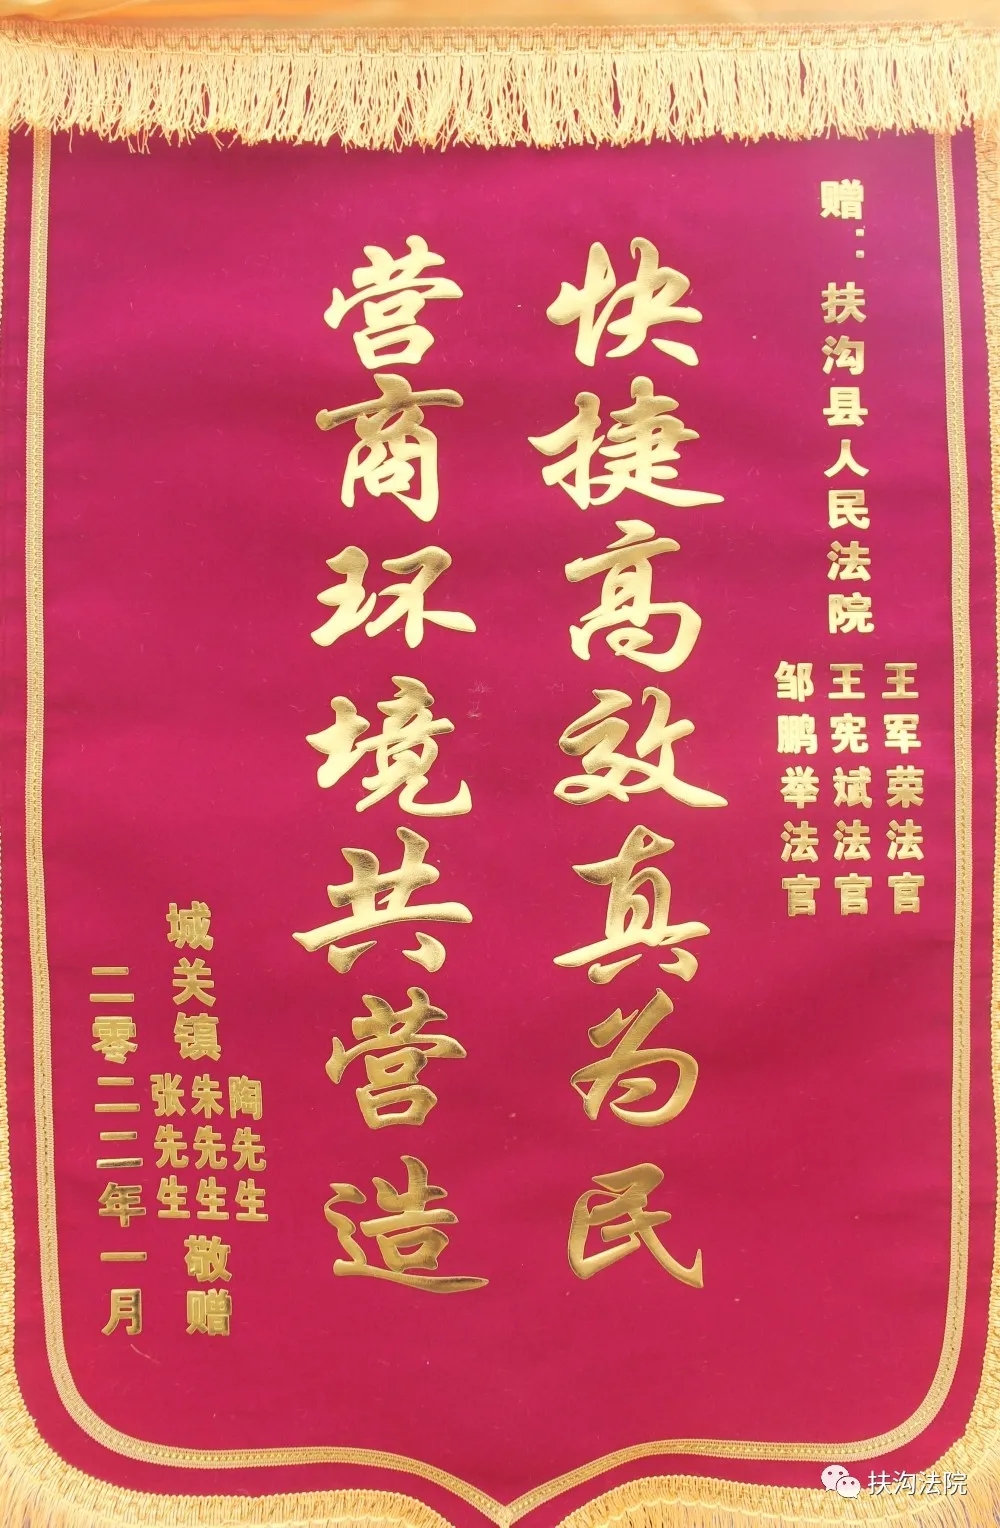 赠：扶沟县人民法院
王军荣法官
王宪斌法官
邹鹏举法官
快捷高效真为民
营商环境共营造
城关镇
陶先生
朱先生
张先生
敬赠
二零二二年一月
扶沟法院